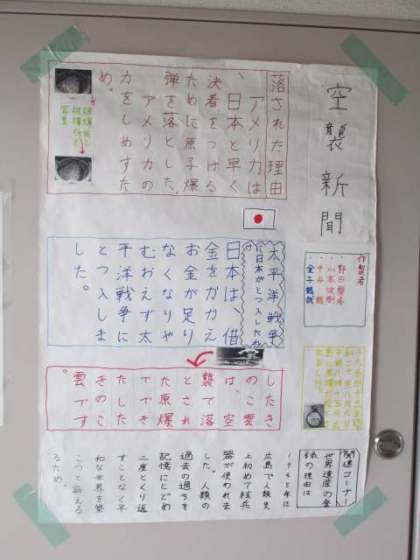 空襲新聞
作製者
落された理由
アメリカは
、日本と早く
決着をつける
ために原子爆
弾を落とした。
アメリカの
力をしめすた
め。
太平洋戦争
に日本がとつ入したわけ
日本は、借
金をかかえ
お金が足り
なくなりや
むおえず太
平洋戦争に
とつ入しま
した。
したき
のこ雲
は、空
襲で落
とされ
た原爆
ででき
たした
きのこ
雲です
関連コーナー
世界遺産の登
録の理由は
広島で人類史
上初めて核兵
器が使われま
した。人類の
過去の過ちを
記憶にとどめ
二度とくり返
すことなく平
和な世界を築
こうと訴える
ため。